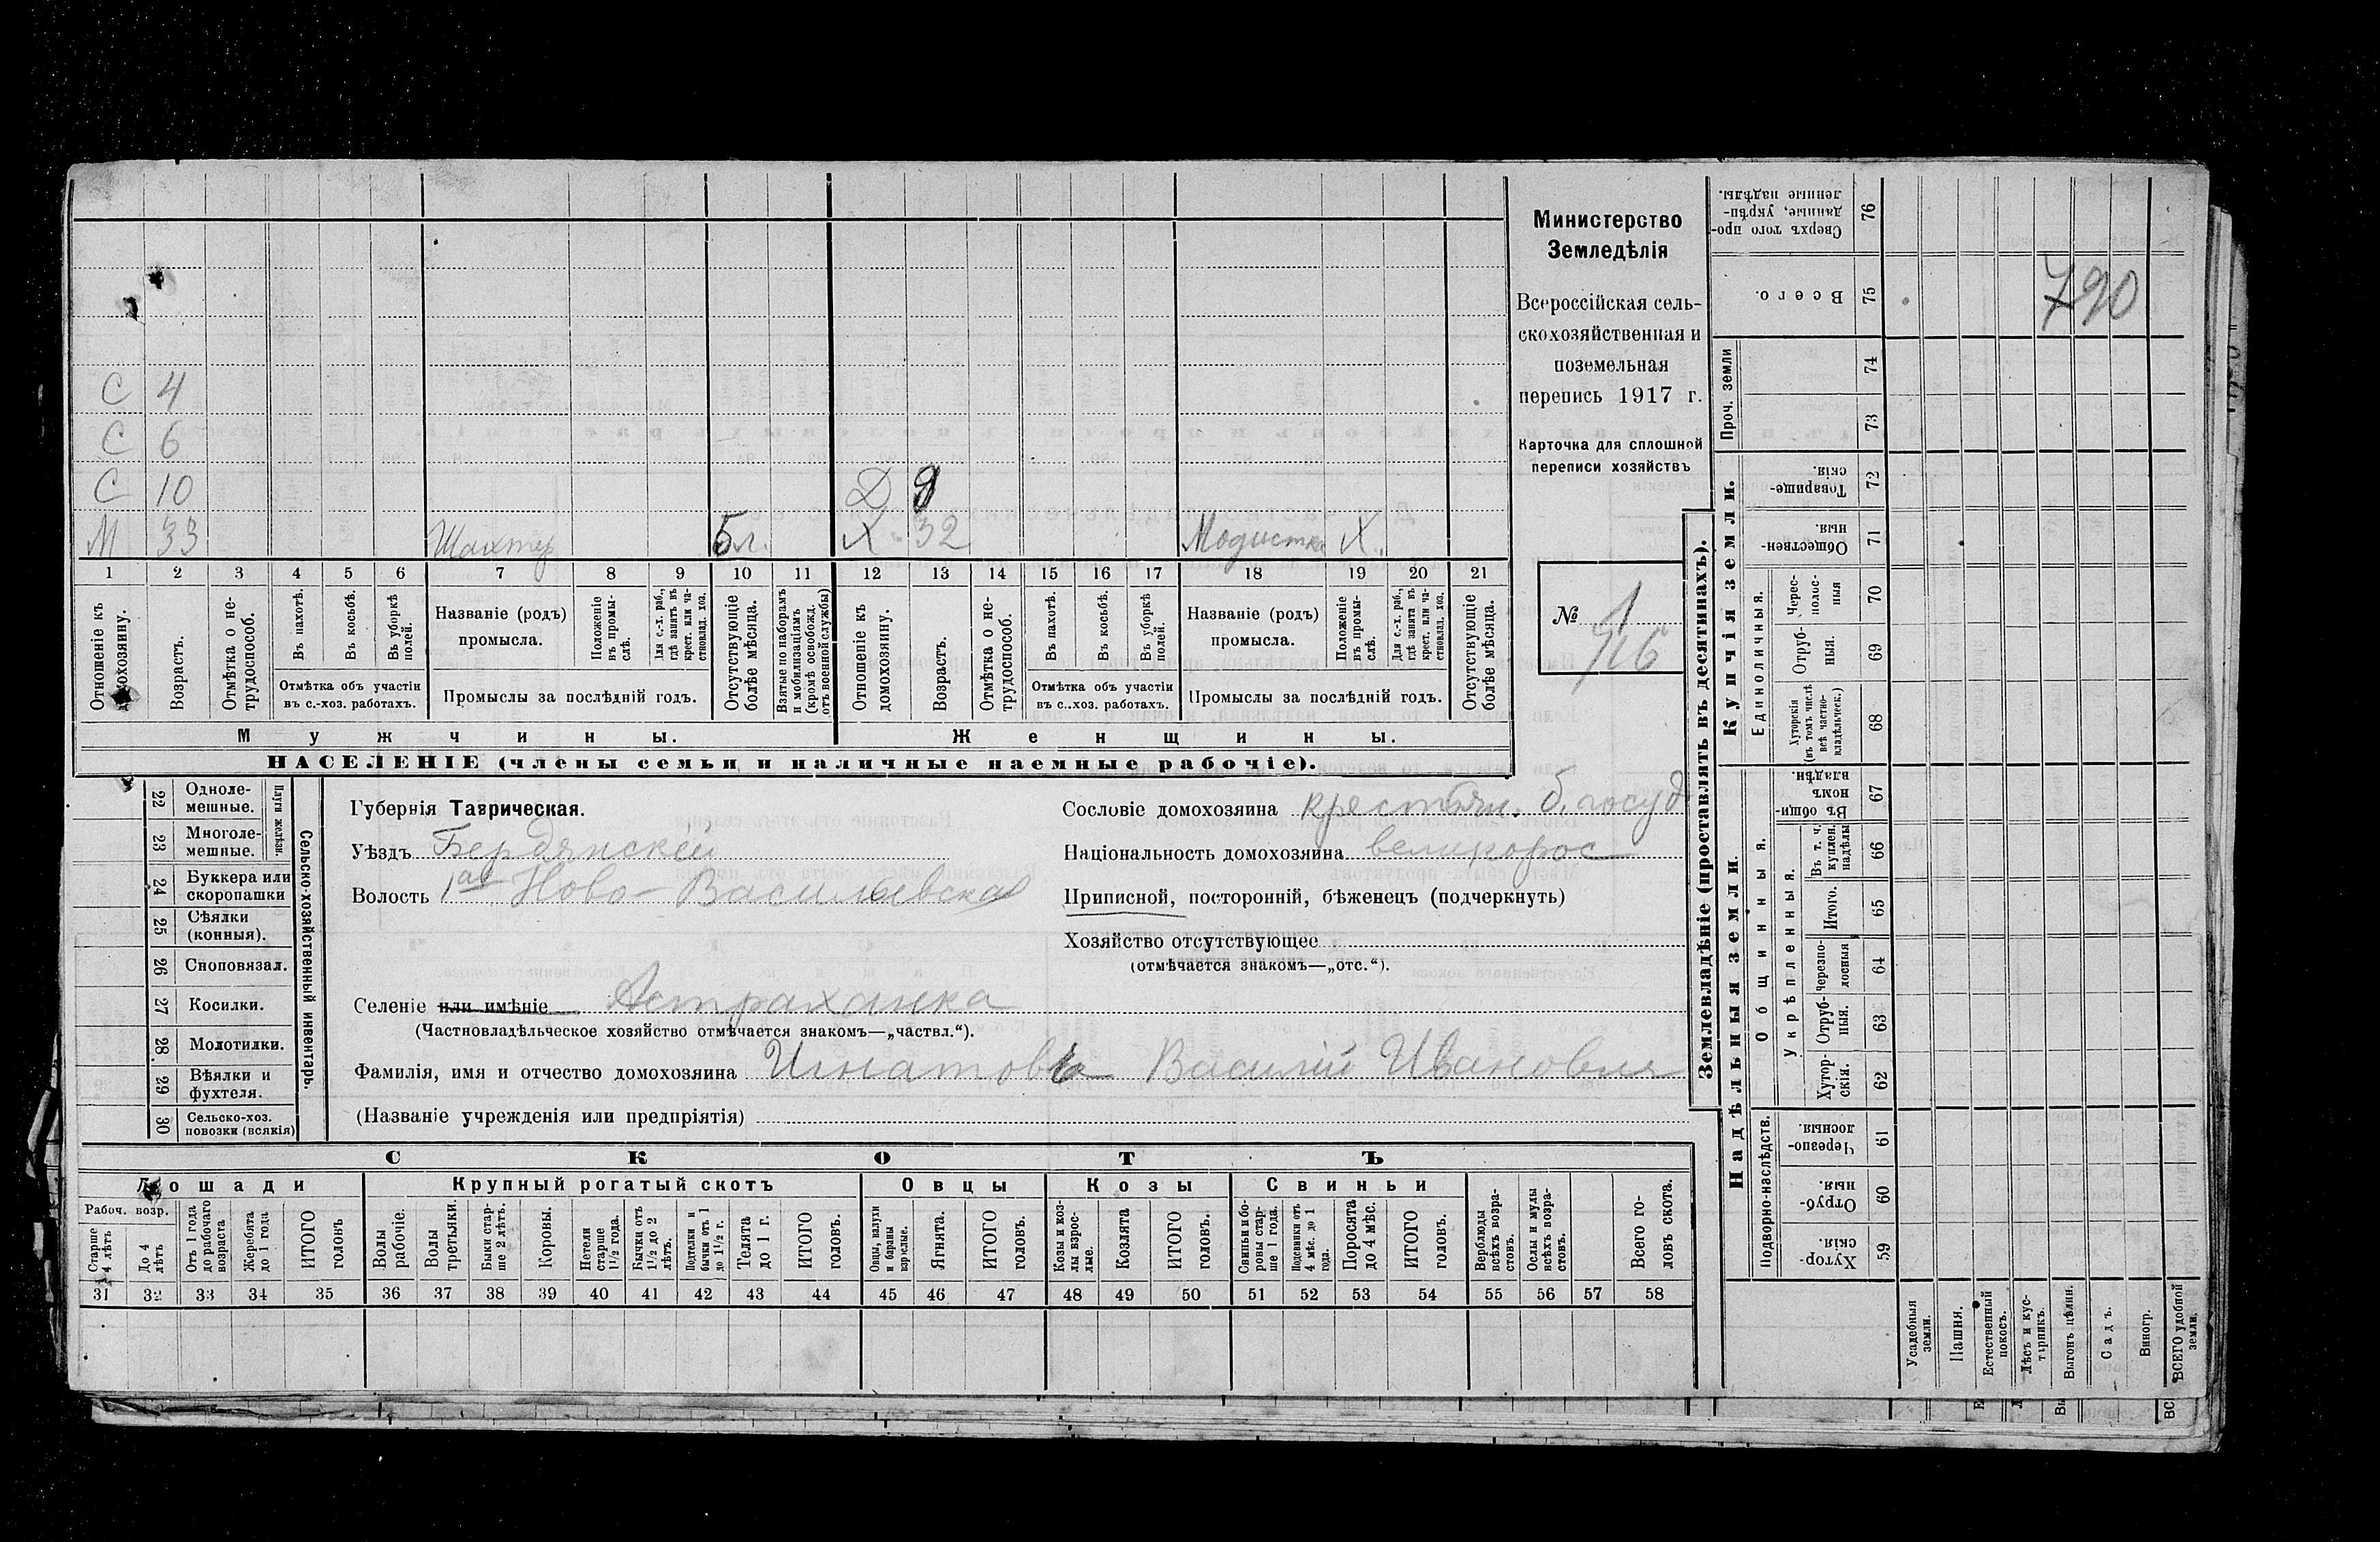 С 4
С 6
С 10 Д 9
М 33 Шахтер 5 л. Х 32 Модистка Х
1 2 3 4 5 6 7 8 9 10 11 12 13 14 15 16 17 18 19 20 21
Отношеніе къ домохозяину.
Возрастъ.
Отмѣтка о не-
трудоспособ.
Въ пахотѣ.
Въ косьбѣ.
Въ уборкѣ
полей.
Отмѣтка объ участіи
въ с.-хоз. работахъ.
Названіе (родъ)
промысла.
Положеніе
въ промы-
слѣ.
Для с.-х. раб.,
гдѣ занятъ въ
крест. или ча-
стновлад. хоз.
Промыслы за послѣдній годъ.
Отсутствующіе
болѣе мѣсяца.
Взятые по наборамъ
и мобилизаціямъ
(кромѣ освобожд.
отъ военной службы)
Отношеніе къ
домохозяину.
Возрастъ.
Отмѣтка о не-
трудоспособ.
Въ пахотѣ.
Въ косьбѣ.
Въ уборкѣ
полей.
Отмѣтка объ участіи
въ с..хоз. работахъ.
Названіе (родъ)
промысла.
Положеніе
въ промы-
слѣ.
Для с.-х. раб.,
гдѣ занята въ
крест. или ча-
стновлад. хоз.
Промыслы за послѣдній годъ.
Отсутствующіе
болѣе мѣсяца.
Мужчины.
Женщины.
НАСЕЛЕНІЕ (члены семьи и наличные наемные рабочіе).
Министерство
Земледѣлія
Всероссійская сель-
скохозяйственная и
поземельная
перепись 1917 г.
Карточка для сплошной
переписи хозяйствъ
№ 1
716
22 Одноле-
мешные.
23 Многоле-
мешные.
Плуги желѣзн.
24 Буккера или
скоропашки
25 Сѣялки
(конныя).
26 Сноповязал.
27 Косилки.
28. Молотилки.
29 Вѣялки и
фухтеля.
30 Сельско-хоз.
повозки (всякія)
Сельско-хозяйственный инвентарь.
Губернія Таврическая.
Уѣздъ Бердянскій
Волость 1ая Ново-Васильевская
Селеніе или имѣніе Астраханка
(Частновладѣльческое хозяйство отмѣчается знакомъ—„частвл.“).
Фамилія, имя и отчество домохозяина Игнатовъ Василій Ивановичъ
(Названіе учрежденія или предпріятія)
Сословіе домохозяина крестьян. б. госуд
Національность домохозяина великорос
Приписной, посторонній, бѣженецъ (подчеркнуть)
Хозяйство отсутствующее
(отмѣчается знакомъ—„отс.“).
СКОТЪ
Лошади
Крупный рогатый скотъ
Овцы
Козы
Свиньи
Рабоч. возр.
Старше
4 лѣтъ
До 4
лѣтъ
Отъ 1 года
до рабочаго
возраста
Жеребята
до 1 года
ИТОГО
головъ
Волы
рабочіе.
Волы
третьяки.
Быки стар-
ше 2 лѣтъ.
Коровы.
Нетели
старше
1½ года.
Бычки отъ
1½ до 2
лѣтъ.
Подтелки и
бычки отъ 1
до 1½ г.
Телята
до 1 г.
ИТОГО
головъ.
Овцы, валухи
и бараны
взрослые.
Ягнята.
ИТОГО
головъ.
Козы и коз-
лы взрос-
лые.
Козлята
ИТОГО
головъ.
Свиньи и бо-
ровы стар-
ше 1 года.
Подсвинки отъ
4 мѣс. до 1
года.
Поросята
до 4 мѣс.
ИТОГО
головъ.
Верблюды
всѣхъ возра-
стовъ.
Ослы и мулы
всѣхъ возра-
стовъ.
Всего го-
ловъ скота.
31 32 33 34 35 36 37 38 39 40 41 42 43 44 45 46 47 48 49 50 51 52 53 54 55 56 57 58
Землевладѣніе (проставлять въ десятинахъ).
Надѣльныя земли.
Купчія земли.
Проч. земли
Подворно-наслѣдств.
Общинныя.
Укрѣпленныя.
Единоличныя.
Хутор-
скія. 59
Отруб-
ныя. 60
Черезпо-
лосныя 61
Хутор-
скія. 62
Отруб-
ныя. 63
Черезпо-
лосныя 64
Итого. 65
Въ т. ч.
куплен.
надѣлы 66
Въ общи-
номъ
владѣн. 67
Хуторскія
(въ томъ числѣ
всѣ частно-
владѣльческ.) 68
Отруб-
ныя. 69
Черес-
полос-
ныя 70
Обществен-
ныя. 71
Товарище-
скія. 72
73
74
Всего. 75
Сверхъ того про-
данные, укрѣп-
ленные надѣлы. 76
790
Усадебныя
земли.
Пашня.
Естественный
покосъ.
Лѣсъ и кус-
тарникъ.
Выгонъ цѣлин.
Садъ.
Виногр.
ВСЕГО удобной
земли.